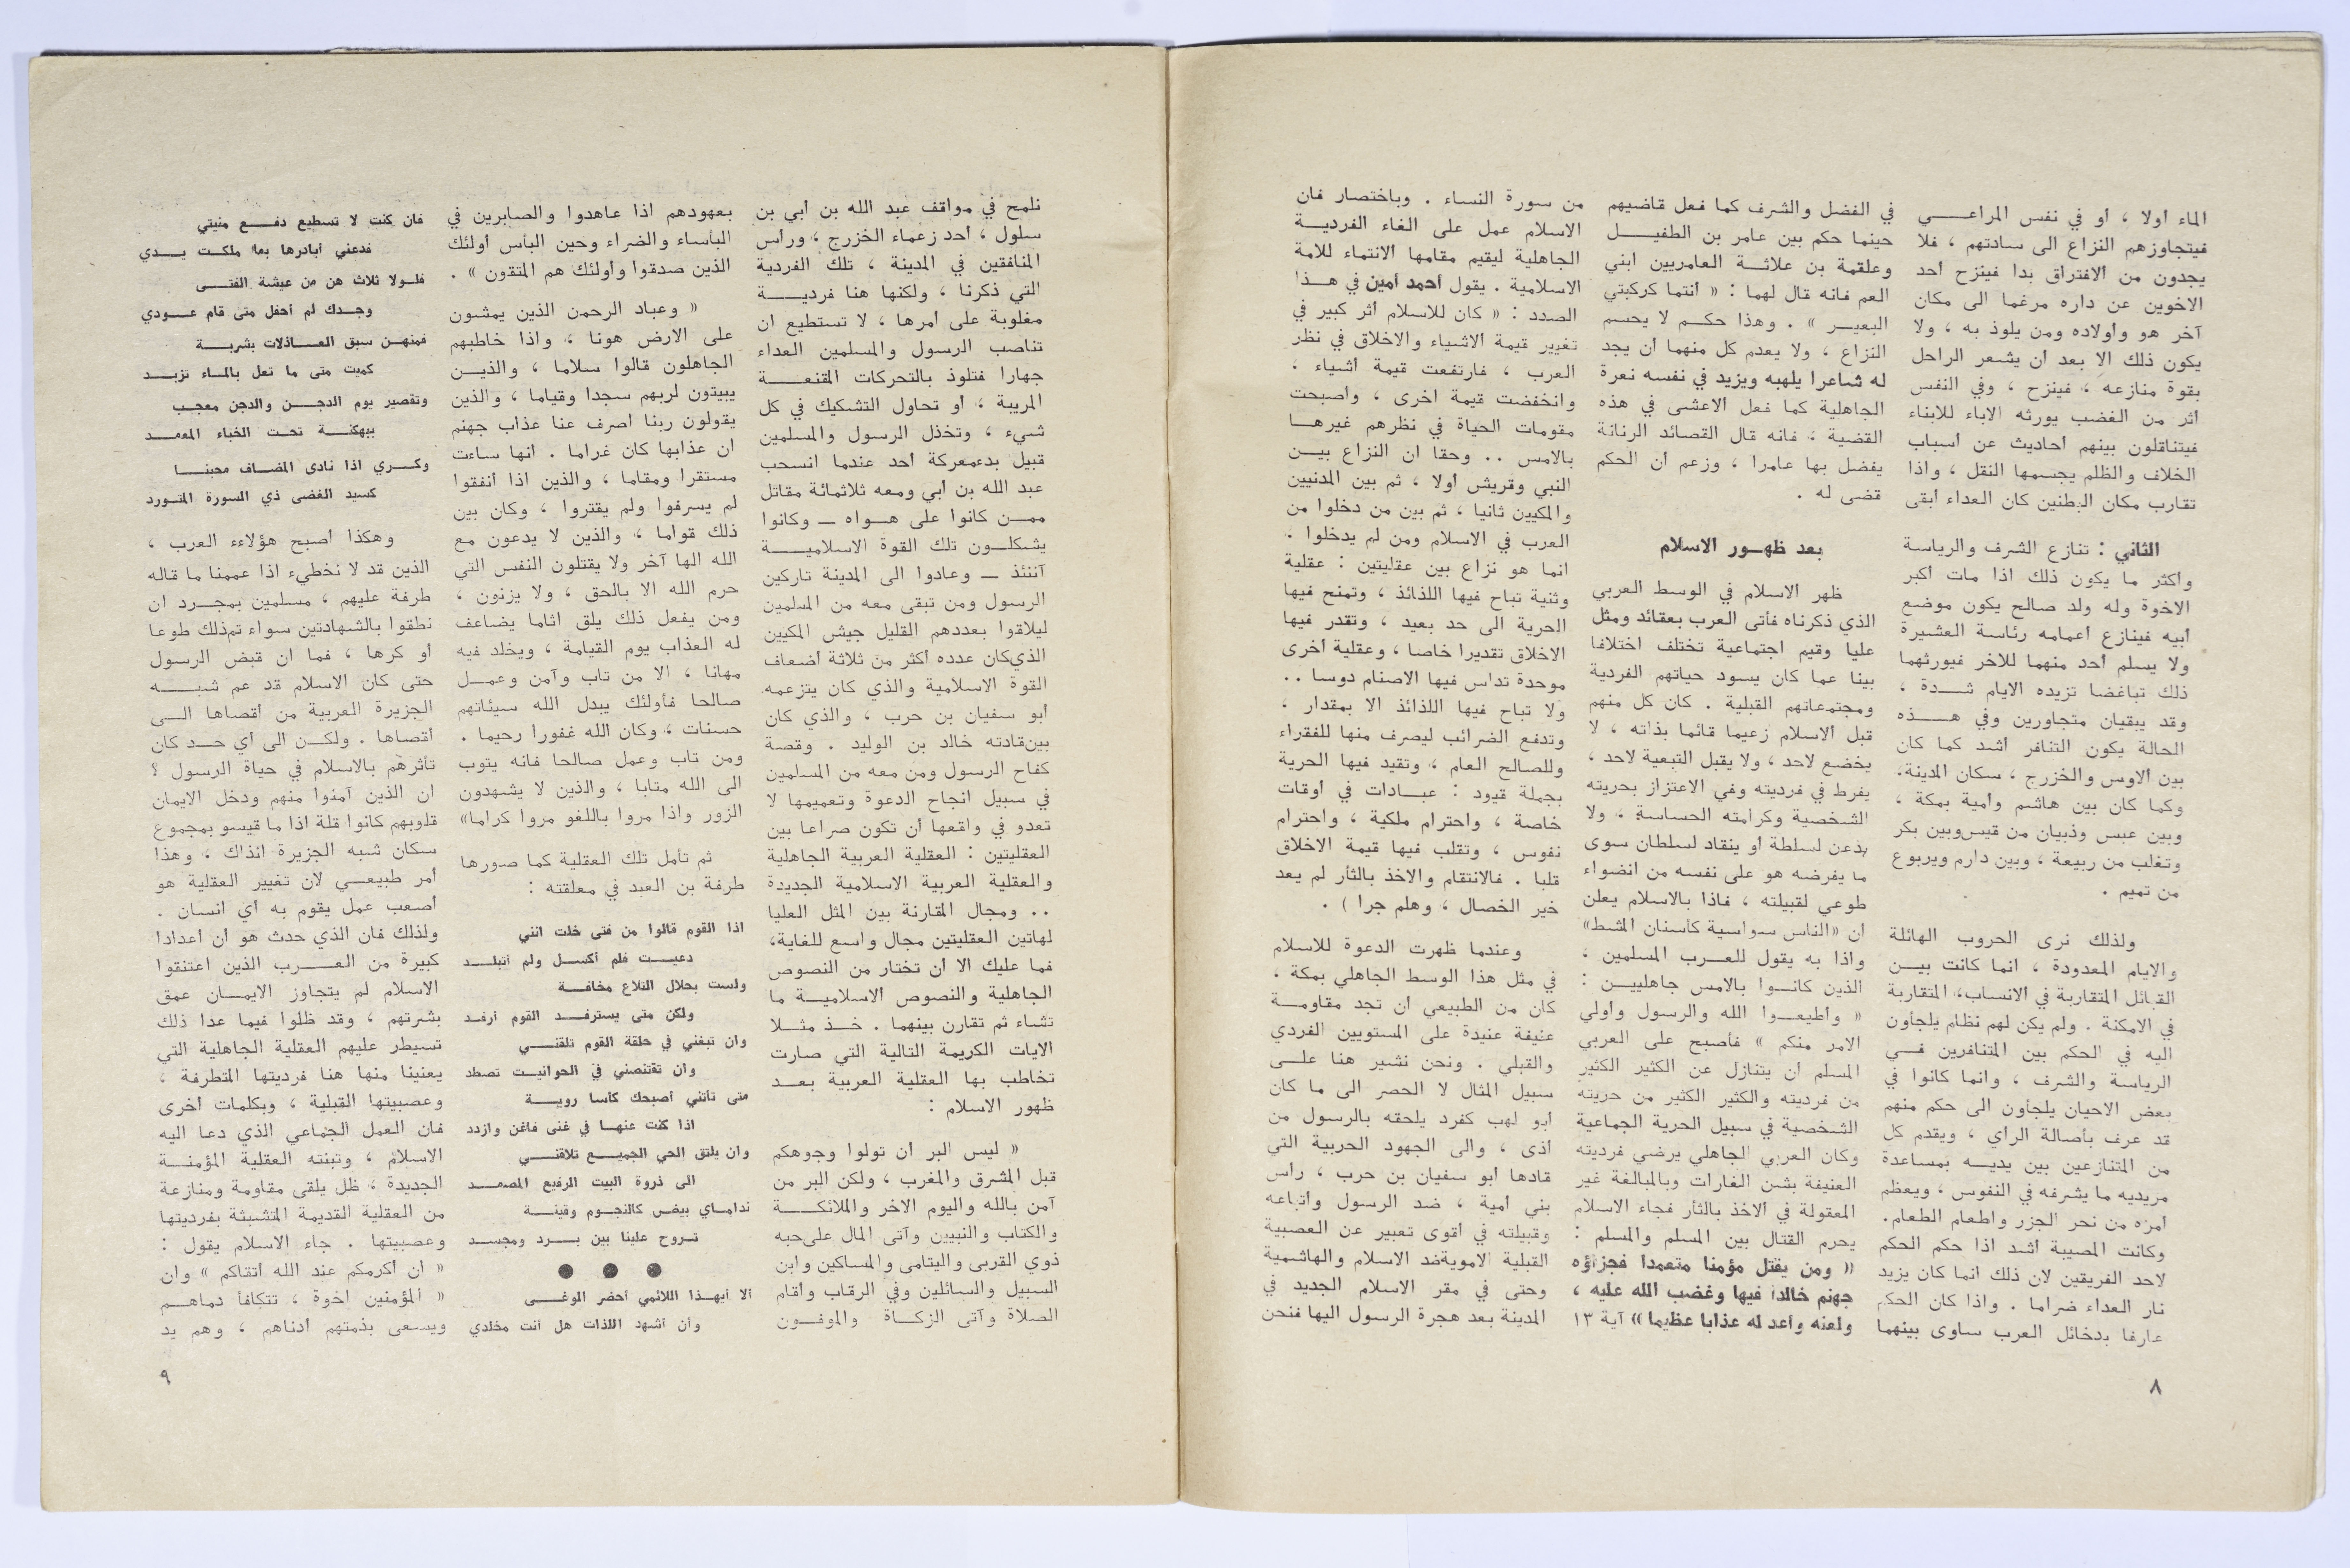 الماء أولا ، أو في نفس المراعـــي
فيتجاوزهم النزاع الى سادتهم ، فلا
يجدون من الافتراق بدا فينزح أحد
الاخوين عن داره مرغما الى مكان
آخر هو وأولاده ومن يلوذ به ، ولا
يكون ذلك الا بعد أن يشعر الراحل
بقوة منازعه ، فينزح ، وفي النفس
أثر من الغضب يورثه الآباء للابناء
فيتناقلون بينهم أحاديث عن أسباب
الخلاف والظلم يجسمها النقل ، واذا
تقارب مكان البطنين كان العداء أبقى
الثاني : تنازع الشرف والرياسة
وأكثر ما يكون ذلك اذا مات أكبر
الاخوة وله ولد صالح يكون موضع
أبيه فينازع أعمامه رئاسة العشيرة
ولا يسلم أحد منهما للاخر فيورثهما
ذلك تباغضا تزيده الايام شــدة ،
وقد يبقيان متجاورين وفي هــذه
الحالة يكون التنافر أشد كما كان
بين الاوس والخزرج ، سكان المدينة.
وكما كان بين هاشم وأمية بمكة ،
وبين عبس وذبيان من قيس وبين بكر
وتغلب من ربيعة ، وبين دارم ويربوع
من تميم .
ولذلك نرى الحروب الهائلة
والايام المعدودة ، انما كانت بيــن
القبائل المتقاربة في الانساب، المتقاربة
في الامكنة . ولم يكن لهم نظام يلجأون
اليه في الحكم بين المتنافرين فــي
الرياسة والشرف ، وانما كانوا في
بعض الاحيان يلجأون الى حكم منهم
قد عرف بأصالة الرأي ، ويقدم كل
من المتنازعين بين يديــه بمساعدة
مريديه ما يشرفه في النفوس ، ويعظم
أمره من نحر الجزر واطعام الطعام.
وكانت المصيبة أشد اذا حكم الحكم
لاحد الفريقين لان ذلك انما كان يزيد
نار العداء ضراما . واذا كان الحكم
عارفا بدخائل العرب ساوى بينهما
في الفضل والشرف كما فعل قاضيهم
حينما حكم بين عامر بن الطفيــل
وعلقمة بن علاثــة العامريين ابني
العم فانه قال لهما : « أنتما كركبتي
البعيــر » . وهذا حكــم لا يحسم
النزاع ، ولا يعدم كل منهما أن يجد
له شاعرا يلهبه ويزيد في نفسه نعرة
الجاهلية كما فعل الاعشى في هذه
القضية ، فانه قال القصائد الرنانة
يفضل بها عامرا ، وزعم أن الحكم
قضى له .
بعد ظهــور الاسلام
ظهر الاسلام في الوسط العربي
الذي ذكرناه فأتى العرب بعقائد ومثل
عليا وقيم اجتماعية تختلف اختلافا
بينا عما كان يسود حياتهم الفردية
ومجتمعاتهم القبلية . كان كل منهم
قبل الاسلام زعيما قائما بذاته ، لا
يخضع لاحد ، ولا يقبل التبعية لاحد ،
يفرط في فرديته وفي الاعتزاز بحريته
الشخصية وكرامته الحساسة ، ولا
يذعن لسلطة أو ينقاد لسلطان سوى
ما يفرضه هو على نفسه من انضواء
طوعي لقبيلته ، فاذا بالاسلام يعلن
أن «الناس سواسية كأسنان المشط»
واذا به يقول للعــرب المسلمين ،
الذين كانــوا بالامس جاهلييــن :
« وأطيعــوا الله والرسول وأولي
الامر منكم » فأصبح على العربي
المسلم أن يتنازل عن الكثير الكثير
من فرديته والكثير الكثير من حريته
الشخصية في سبيل الحرية الجماعية
وكان العربي الجاهلي يرضي فرديته
العنيفة بشن الغارات وبالمبالغة غير
المعقولة في الاخذ بالثأر فجاء الاسلام
يحرم القتال بين المسلم والمسلم :
« ومن يقتل مؤمنا متعمدا فجزاؤه
جهنم خالدا فيها وغضب الله عليه ،
ولعنه وأعد له عذابا عظيما » آية ١٣
من سورة النساء . وباختصار فان
الاسلام عمل على الغاء الفرديــة
الجاهلية ليقيم مقامها الانتماء للامة
الاسلامية . يقول أحمد أمين في هــذا
الصدد : « كان للاسلام أثر كبير في
تغيير قيمة الاشياء والاخلاق في نظر
العرب ، فارتفعت قيمة أشياء ،
وانخفضت قيمة أخرى ، وأصبحت
مقومات الحياة في نظرهم غيرهــا
بالامس .. وحقا ان النزاع بيــن
النبي وقريش أولا ، ثم بين المدنيين
والمكيين ثانيا ، ثم بين من دخلوا من
العرب في الاسلام ومن لم يدخلوا .
انما هو نزاع بين عقليتين : عقلية
وثنية تباح فيها اللذائذ ، وتمنح فيها
الحرية الى حد بعيد ، وتقدر فيها
الاخلاق تقديرا خاصا ، وعقلية أخرى
موحدة تداس فيها الاصنام دوسا ..
ولا تباح فيها اللذائذ الا بمقدار ،
وتدفع الضرائب ليصرف منها للفقراء
وللصالح العام ، وتقيد فيها الحرية
بجملة قيود : عبــادات في أوقات
خاصة ، واحترام ملكية ، واحترام
نفوس ، وتقلب فيها قيمة الاخلاق
قلبا . فالانتقام والاخذ بالثأر لم يعد
خير الخصال ، وهلم جرا ) .
وعندما ظهرت الدعوة للاسلام
في مثل هذا الوسط الجاهلي بمكة ،
كان من الطبيعي أن تجد مقاومــة
عنيفة عنيدة على المستويين الفردي
والقبلي . ونحن نشير هنا علــى
سبيل المثال لا الحصر الى ما كان
أبو لهب كفرد يلحقه بالرسول من
أذى ، والى الجهود الحربية التي
قادها أبو سفيان بن حرب ، رأس
بني أمية ، ضد الرسول وأتباعه
وقبيلته في أقوى تعبير عن العصبية
القبلية الاموية ضد الاسلام والهاشمية
وحتى في مقر الاسلام الجديد في
المدينة بعد هجرة الرسول اليها فنحن
٨
نلمح في مواقف عبد الله بن أبي بن
سلول ، أحد زعماء الخزرج ، ورأس
المنافقين في المدينة ، تلك الفردية
التي ذكرنا ، ولكنها هنا فرديــة
مغلوبة على أمرها ، لا تستطيع أن
تناصب الرسول والمسلمين العداء
جهارا فتلوذ بالتحركات المقنعــة
المريبة ، أو تحاول التشكيك في كل
شيء ، وتخذل الرسول والمسلمين
قبيل بدء معركة أحد عندما انسحب
عبد الله بن أبي ومعه ثلاثمائة مقاتل
ممــن كانوا على هــواه — وكانوا
يشكلــون تلك القوة الاسلاميــة
آنئذ — وعادوا الى المدينة تاركين
الرسول ومن تبقى معه من المسلمين
ليلاقوا بعددهم القليل جيش المكيين
الذي كان عدده أكثر من ثلاثة أضعاف
القوة الاسلامية والذي كان يتزعمه
أبو سفيان بن حرب ، والذي كان
بين قادته خالد بن الوليد . وقصة
كفاح الرسول ومن معه من المسلمين
في سبيل انجاح الدعوة وتعميمها لا
تعدو في واقعها أن تكون صراعا بين
العقليتين : العقلية العربية الجاهلية
والعقلية العربية الاسلامية الجديدة
.. ومجال المقارنة بين المثل العليا
لهاتين العقليتين مجال واسع للغاية،
فما عليك الا أن تختار من النصوص
الجاهلية والنصوص الاسلاميــة ما
تشاء ثم تقارن بينهما . خــذ مثــلا
الايات الكريمة التالية التي صارت
تخاطب بها العقلية العربية بعــد
ظهور الاسلام :
« ليس البر أن تولوا وجوهكم
قبل المشرق والمغرب ، ولكن البر من
آمن بالله واليوم الاخر والملائكــة
والكتاب والنبيين وآتى المال على حبه
ذوي القربى واليتامى والمساكين وابن
السبيل والسائلين وفي الرقاب وأقام
الصلاة وآتى الزكــاة والموفــون
بعهودهم اذا عاهدوا والصابرين في
البأساء والضراء وحين البأس أولئك
الذين صدقوا وأولئك هم المتقون » .
« وعباد الرحمن الذين يمشون
على الارض هونا ، واذا خاطبهم
الجاهلون قالوا سلاما ، والذيــن
يبيتون لربهم سجدا وقياما ، والذين
يقولون ربنا اصرف عنا عذاب جهنم
ان عذابها كان غراما . انها ساءت
مستقرا ومقاما ، والذين اذا أنفقوا
لم يسرفوا ولم يقتروا ، وكان بين
ذلك قواما ، والذين لا يدعون مع
الله الها آخر ولا يقتلون النفس التي
حرم الله الا بالحق ، ولا يزنون ،
ومن يفعل ذلك يلق أثاما يضاعف
له العذاب يوم القيامة ، ويخلد فيه
مهانا ، الا من تاب وآمن وعمــل
صالحا فأولئك يبدل الله سيئاتهم
حسنات ، وكان الله غفورا رحيما .
ومن تاب وعمل صالحا فانه يتوب
الى الله متابا ، والذين لا يشهدون
الزور واذا مروا باللغو مروا كراما»
ثم تأمل تلك العقلية كما صورها
طرفة بن العبد في معلقته :
اذا القوم قالوا من فتى خلت انني
دعيــت فلم أكســل ولم أتبلــد
ولست بحلال التلاع مخافــة
ولكن متى يسترفــد القوم أرفــد
وان تبغني في حلقة القوم تلقنــي
وان تقتنصني في الحوانيــت تصطد
متى تأتني أصبحك كأسا رويــة
اذا كنت عنهــا في غنى فاغن وازدد
وان يلتق الحي الجميــع تلاقنــي
الى ذروة البيت الرفيع المصمــد
ندامــاي بيض كالنجــوم وقينــة
تــروح علينا بين بــرد ومجســد
● ● ●
ألا أيهــذا اللائمي أحضر الوغــى
وأن أشهد اللذات هل أنت مخلدي
فان كنت لا تسطيع دفــع منيتي
فدعني أبادرها بما ملكــت يــدي
فلــولا ثلاث هن من عيشة الفتــى
وجــدك لم أحفل متى قام عــودي
فمنهــن سبق العــاذلات بشربــة
كميت متى ما تعل بالمــاء تزبــد
وتقصير يوم الدجــن والدجن معجــب
ببهكنــة تحــت الخباء المعمــد
وكــري اذا نادى المضــاف محبنــا
كسيد الغضى ذي السورة المتــورد
وهكذا أصبح هؤلاءء العرب ،
الذين قد لا نخطيء اذا عممنا ما قاله
طرفة عليهم ، مسلمين بمجــرد أن
نطقوا بالشهادتين سواء تم ذلك طوعا
أو كرها ، فما ان قبض الرسول
حتى كان الاسلام قد عم شبــه
الجزيرة العربية من أقصاها الــى
أقصاها . ولكــن الى أي حــد كان
تأثرهم بالاسلام في حياة الرسول ؟
ان الذين آمنوا منهم ودخل الايمان
قلوبهم كانوا قلة اذا ما قيسو بمجموع
سكان شبه الجزيرة انذاك ، وهذا
أمر طبيعــي لان تغيير العقلية هو
أصعب عمل يقوم به أي انسان .
ولذلك فان الذي حدث هو أن أعدادا
كبيرة من العــرب الذين اعتنقوا
الاسلام لم يتجاوز الايمــان عمق
بشرتهم ، وقد ظلوا فيما عدا ذلك
تسيطر عليهم العقلية الجاهلية التي
يعنينا منها هنا فرديتها المتطرفة ،
وعصبيتها القبلية ، وبكلمات أخرى
فان العمل الجماعي الذي دعا اليه
الاسلام ، وتبنته العقلية المؤمنــة
الجديدة ، ظل يلقى مقاومة ومنازعة
من العقلية القديمة المتشبثة بفرديتها
وعصبيتها . جاء الاسلام يقول :
« ان أكرمكم عند الله أتقاكم » وان
« المؤمنين اخوة ، تتكافأ دماهــم
ويسعى بذمتهم أدناهم ، وهم يد
٩